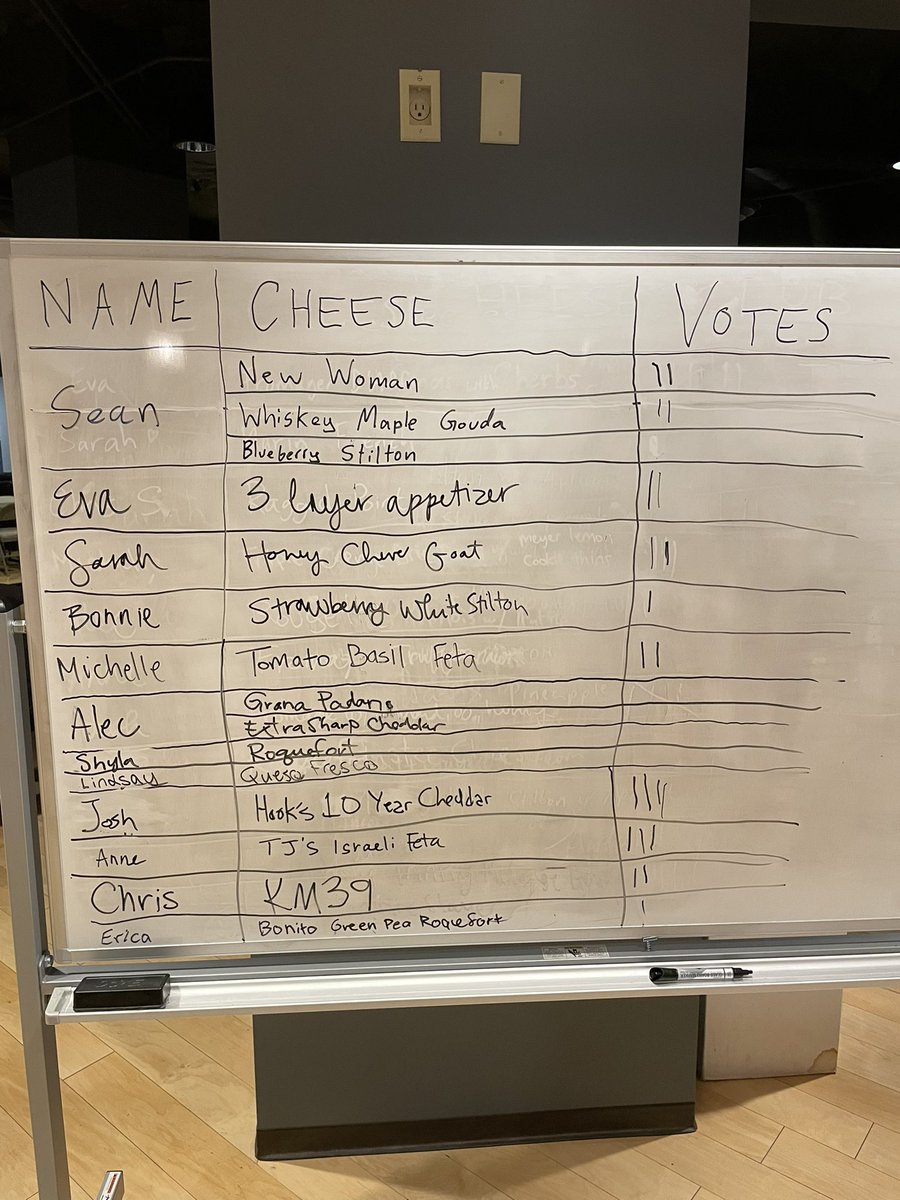 NAME CHEESE VOTES
Sean New Woman II
Whiskey Maple Gouda II
Blueberry Stilton
Eva 3 layer appetizer II
Sarah Honey Chevr Goat II
Bonnie Strawberry White Stilton I
Michelle Tomato Basil Feta II
Alec Grana Padano
Extra Sharp Cheddar
Shyla Roquefort
Lindsay Queso Fresco
Josh Hook's 10 Year Cheddar IIII
Anne TJ's Israeli Feta III
Chris KM39 II
Erica Bonito Green Pea Roquefort I